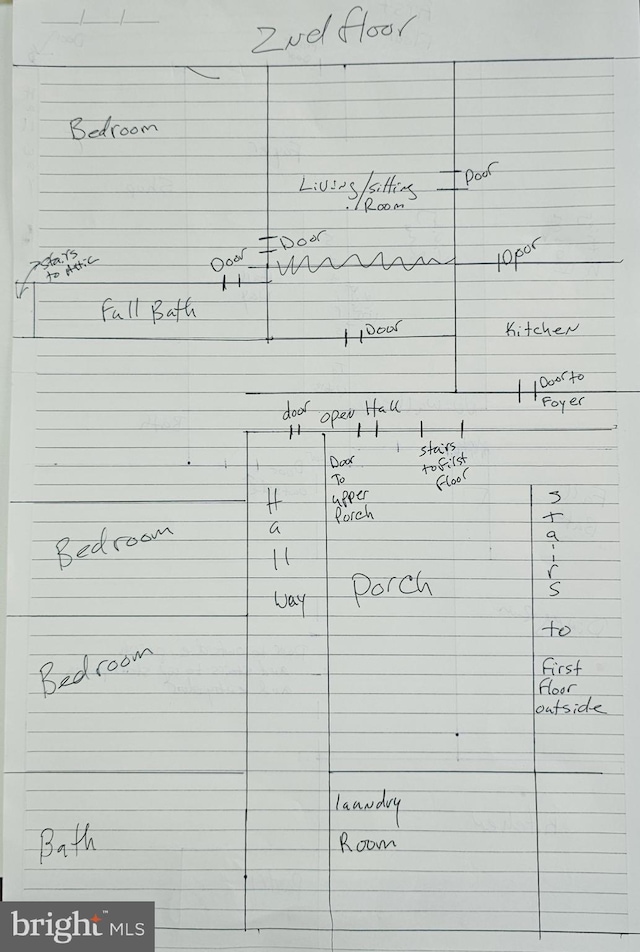 2nd floor
Bedroom
Door
Living/sitting
Room
Door
Door
Door
stairs
to Attic
Full Bath
Door
Kitchen
Door to
Foyer
door
open Hall
Door
To
upper
Porch
stairs
to first
floor
Hallway
Bedroom
Porch
Stairs
to
first
floor
outside
Bedroom
laundry
Room
Bath
bright™ MLS